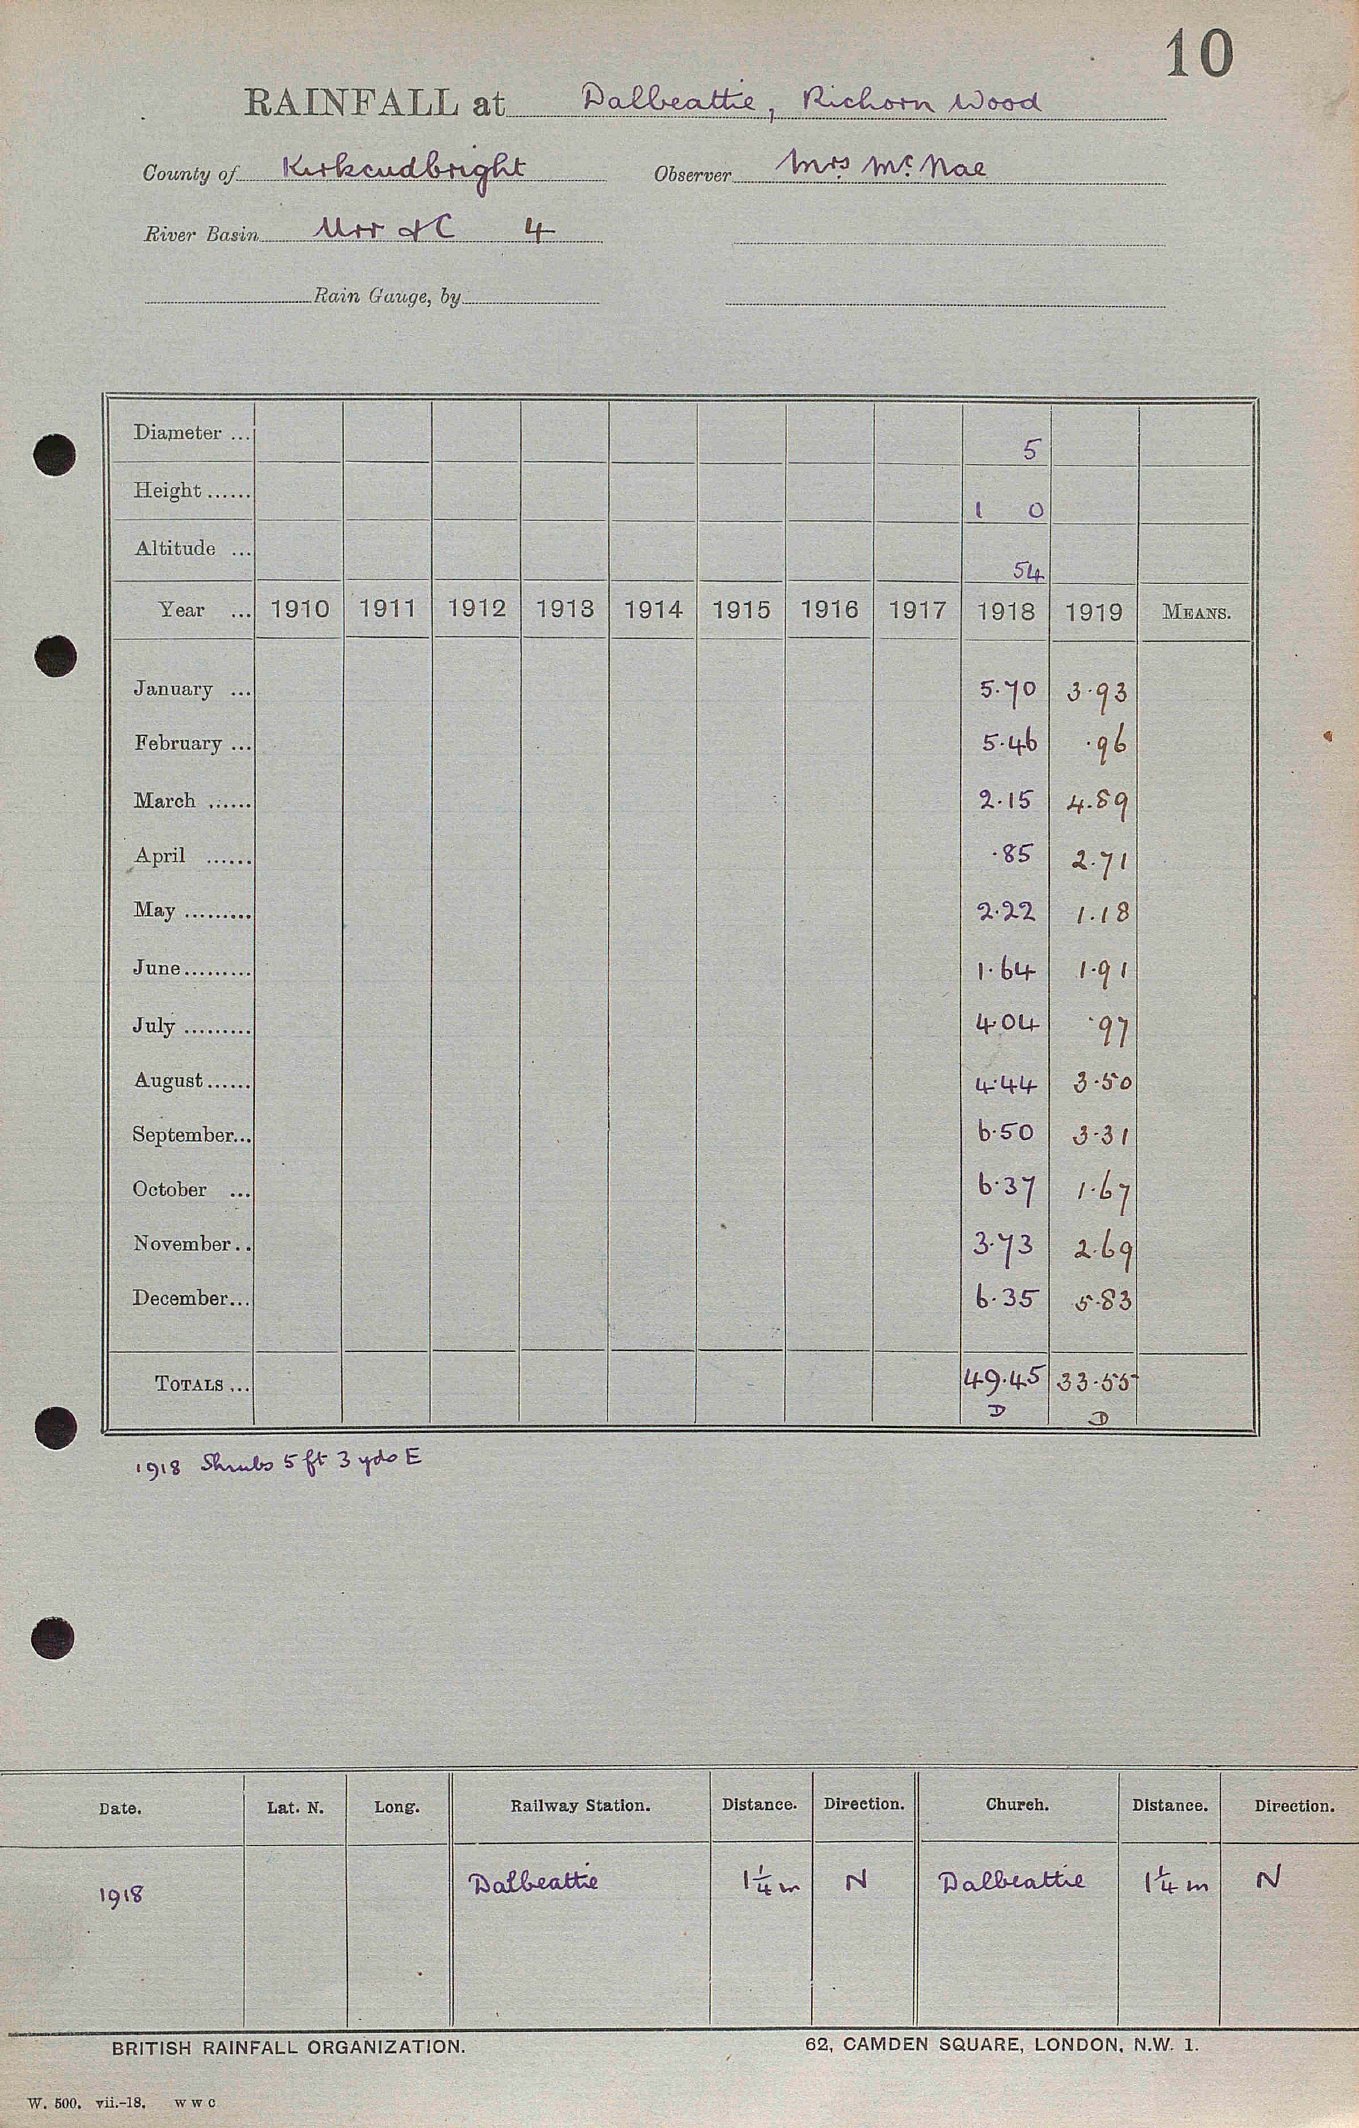 10
RAINFALL at Dalbeattie, Richorn Wood
County of Kirkcudbright Observer Mrs. Mc. Nae
River Basin Urr &C 4
Rain Gauge, by
Diameter ... 5
Height ...... 1 0
Altitude ... 54
Year ... 1910 1911 1912 1913 1914 1915 1916 1917 1918 1919 MEANS.
January ... 5.70 3.93
February ... 5.46 .96
March ...... 2.15 4.89
April ...... .85 2.71
May ......... 2.22 1.18
June ......... 1.64 1.91
July ......... 4.04 .97
August ...... 4.44 3.50
September... 6.50 3.31
October ... 6.37 1.67
November .. 3.73 2.69
December... 6.35 5.83
TOTALS ... 49.45 33.55
D D
1918 Shrubs 5 ft 3 yds E
Date. Lat. N. Long. Railway Station. Distance. Direction. Church. Distance. Direction.
1918 Dalbeattie 1¼ m N Dalbeattie 1¼ m N
BRITISH RAINFALL ORGANIZATION. 62, CAMDEN SQUARE, LONDON, N.W. 1.
W. 500. vii.-18. W W C